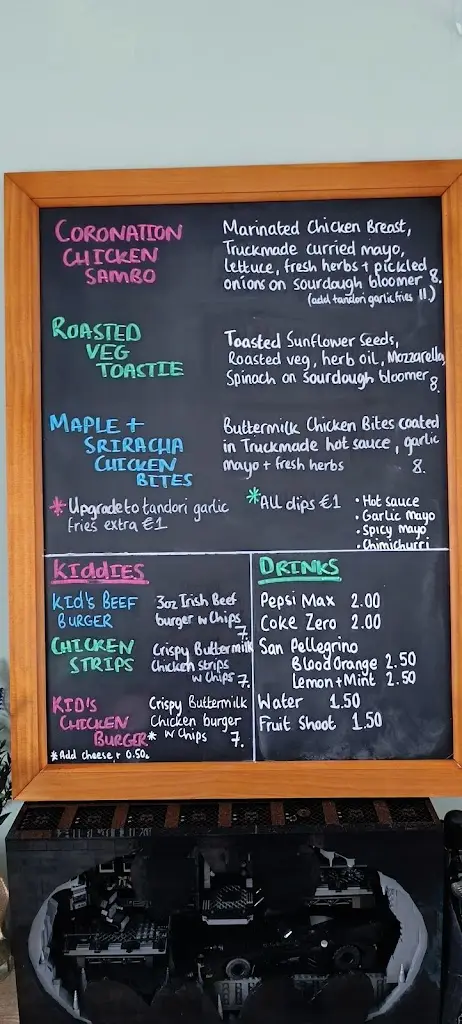 CORONATION
CHICKEN
SAMBO
Marinated Chicken Breast,
Truckmade curried mayo,
lettuce, fresh herbs + pickled
onions on sourdough bloomer 8.
(add tandori garlic fries 11.)
ROASTED
VEG
TOASTIE
Toasted Sunflower Seeds,
Roasted veg, herb oil, Mozzarella,
Spinach on Sourdough bloomer 8.
MAPLE +
SRIRACHA
CHICKEN
BITES
Buttermilk Chicken Bites coated
in Truckmade hot sauce, garlic
mayo + fresh herbs 8.
* Upgrade to tandori garlic
fries extra €1
* All dips €1
• Hot sauce
• Garlic mayo
• Spicy mayo
• Chimichurri
KIDDIES
KID'S BEEF
BURGER
3oz Irish Beef
burger w Chips
7.
CHICKEN
STRIPS
Crispy Buttermilk
Chicken strips
w Chips 7.
KID'S
CHICKEN
BURGER
Crispy Buttermilk
Chicken burger
* w Chips 7.
* Add cheese + 0.50c
DRINKS
Pepsi Max 2.00
Coke Zero 2.00
San Pellegrino
Blood Orange 2.50
Lemon + Mint 2.50
Water 1.50
Fruit Shoot 1.50